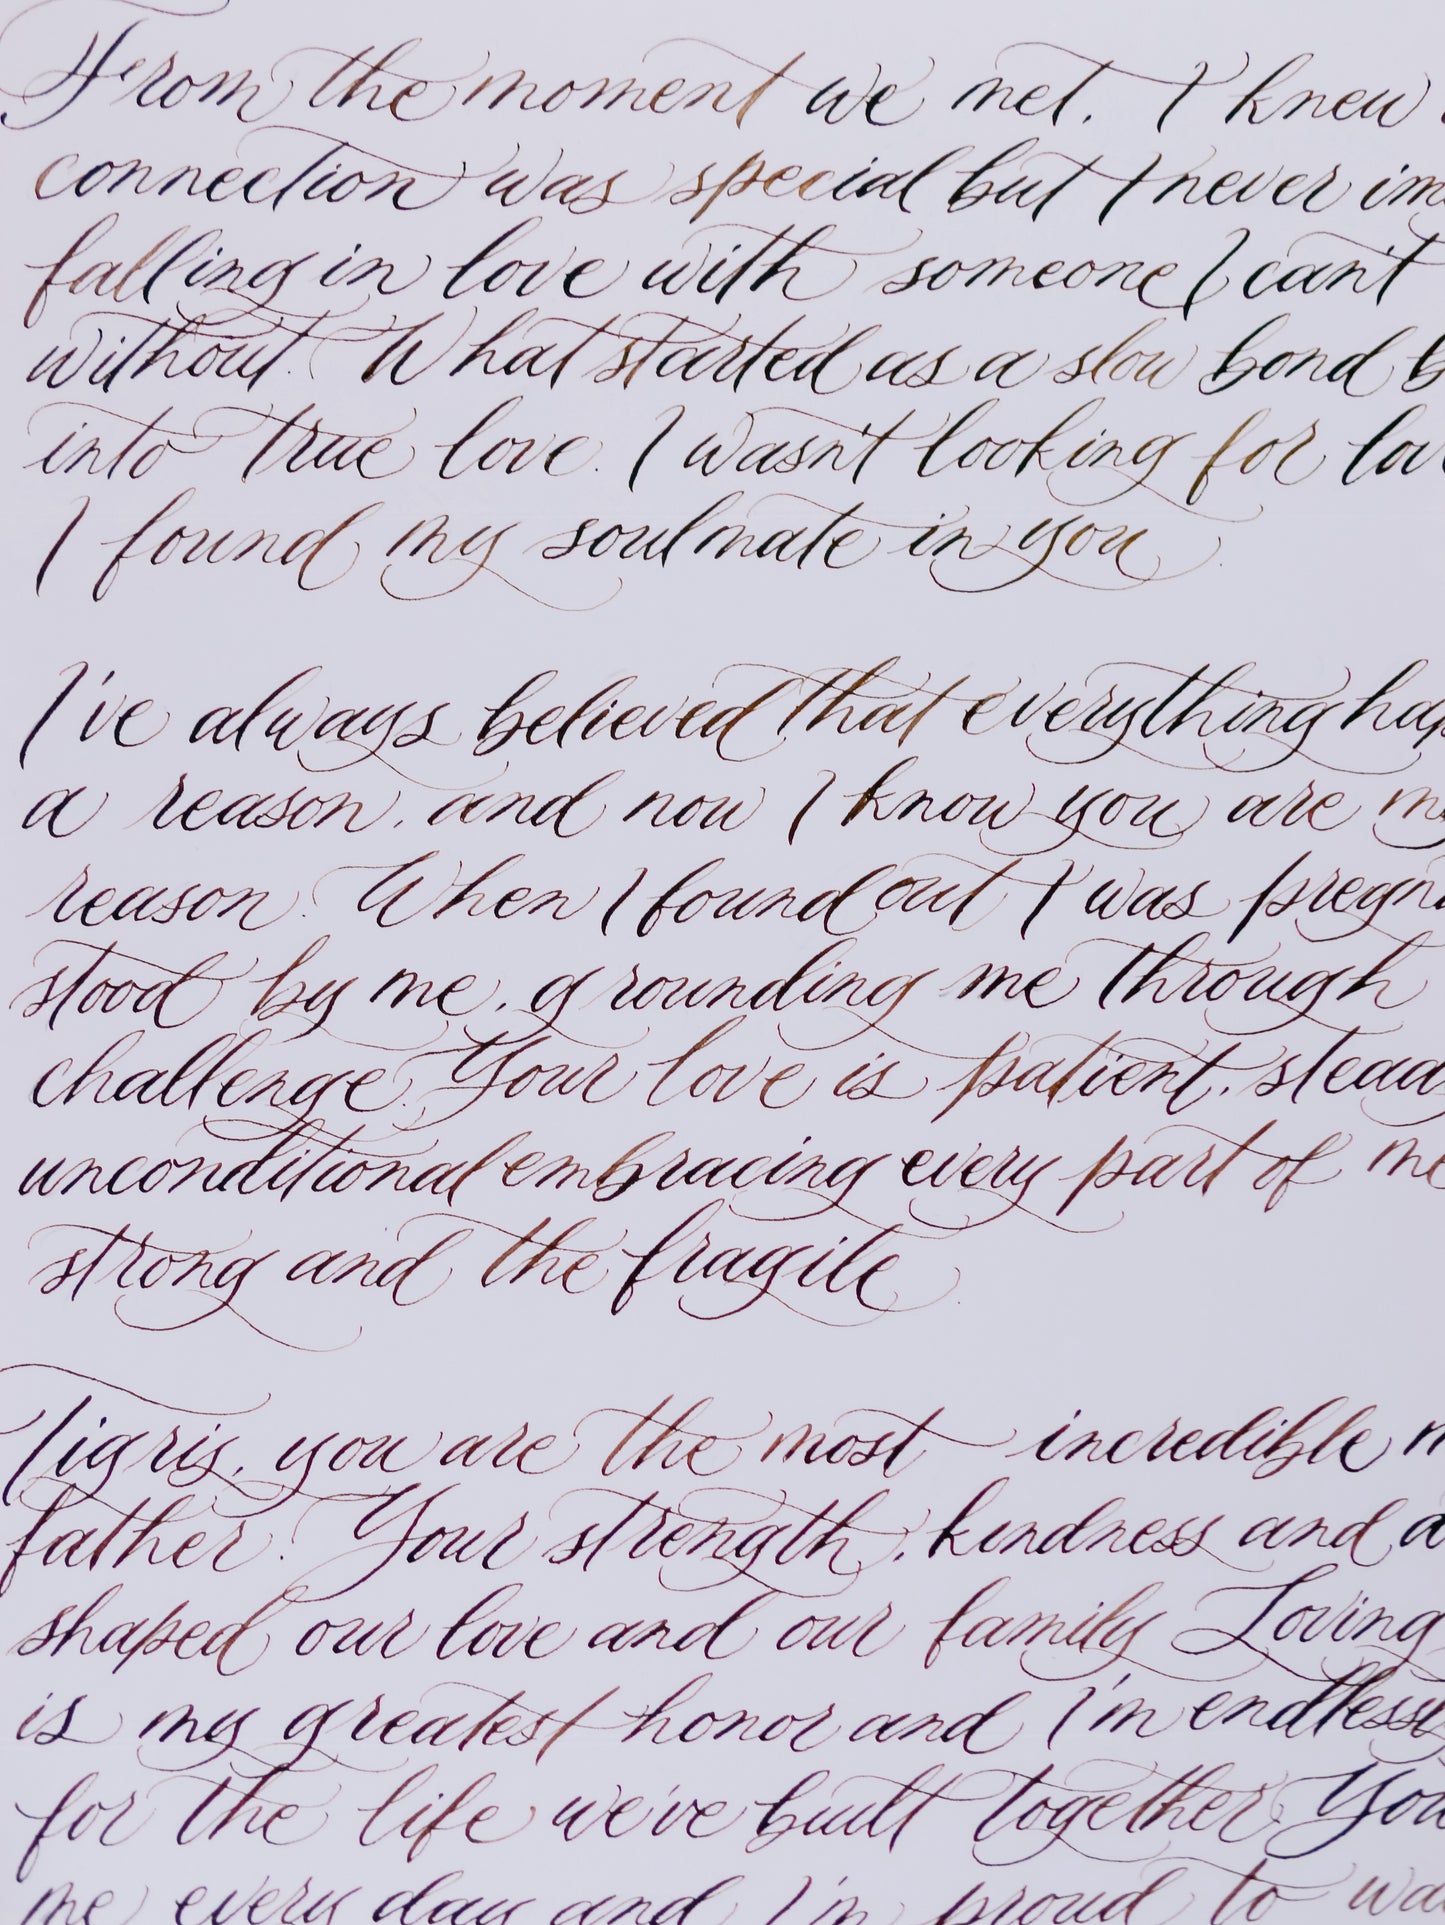 From the moment we met, I knew
connection was special but I never im
falling in love with someone I can't
without. What started as a slow bond b
into true love. I wasn't looking for lov
I found my soulmate in you.
I've always believed that everything hap
a reason, and now I know you are my
reason. When I found out I was pregn
stood by me, grounding me through
challenge. Your love is patient, stead
unconditional embracing every part of me
strong and the fragile.
Tigris, you are the most incredible
father. Your strength, kindness and
shaped our love and our family. Loving
is my greatest honor and I'm endlessly
for the life we've built together. You
me every day and I'm proud to wa